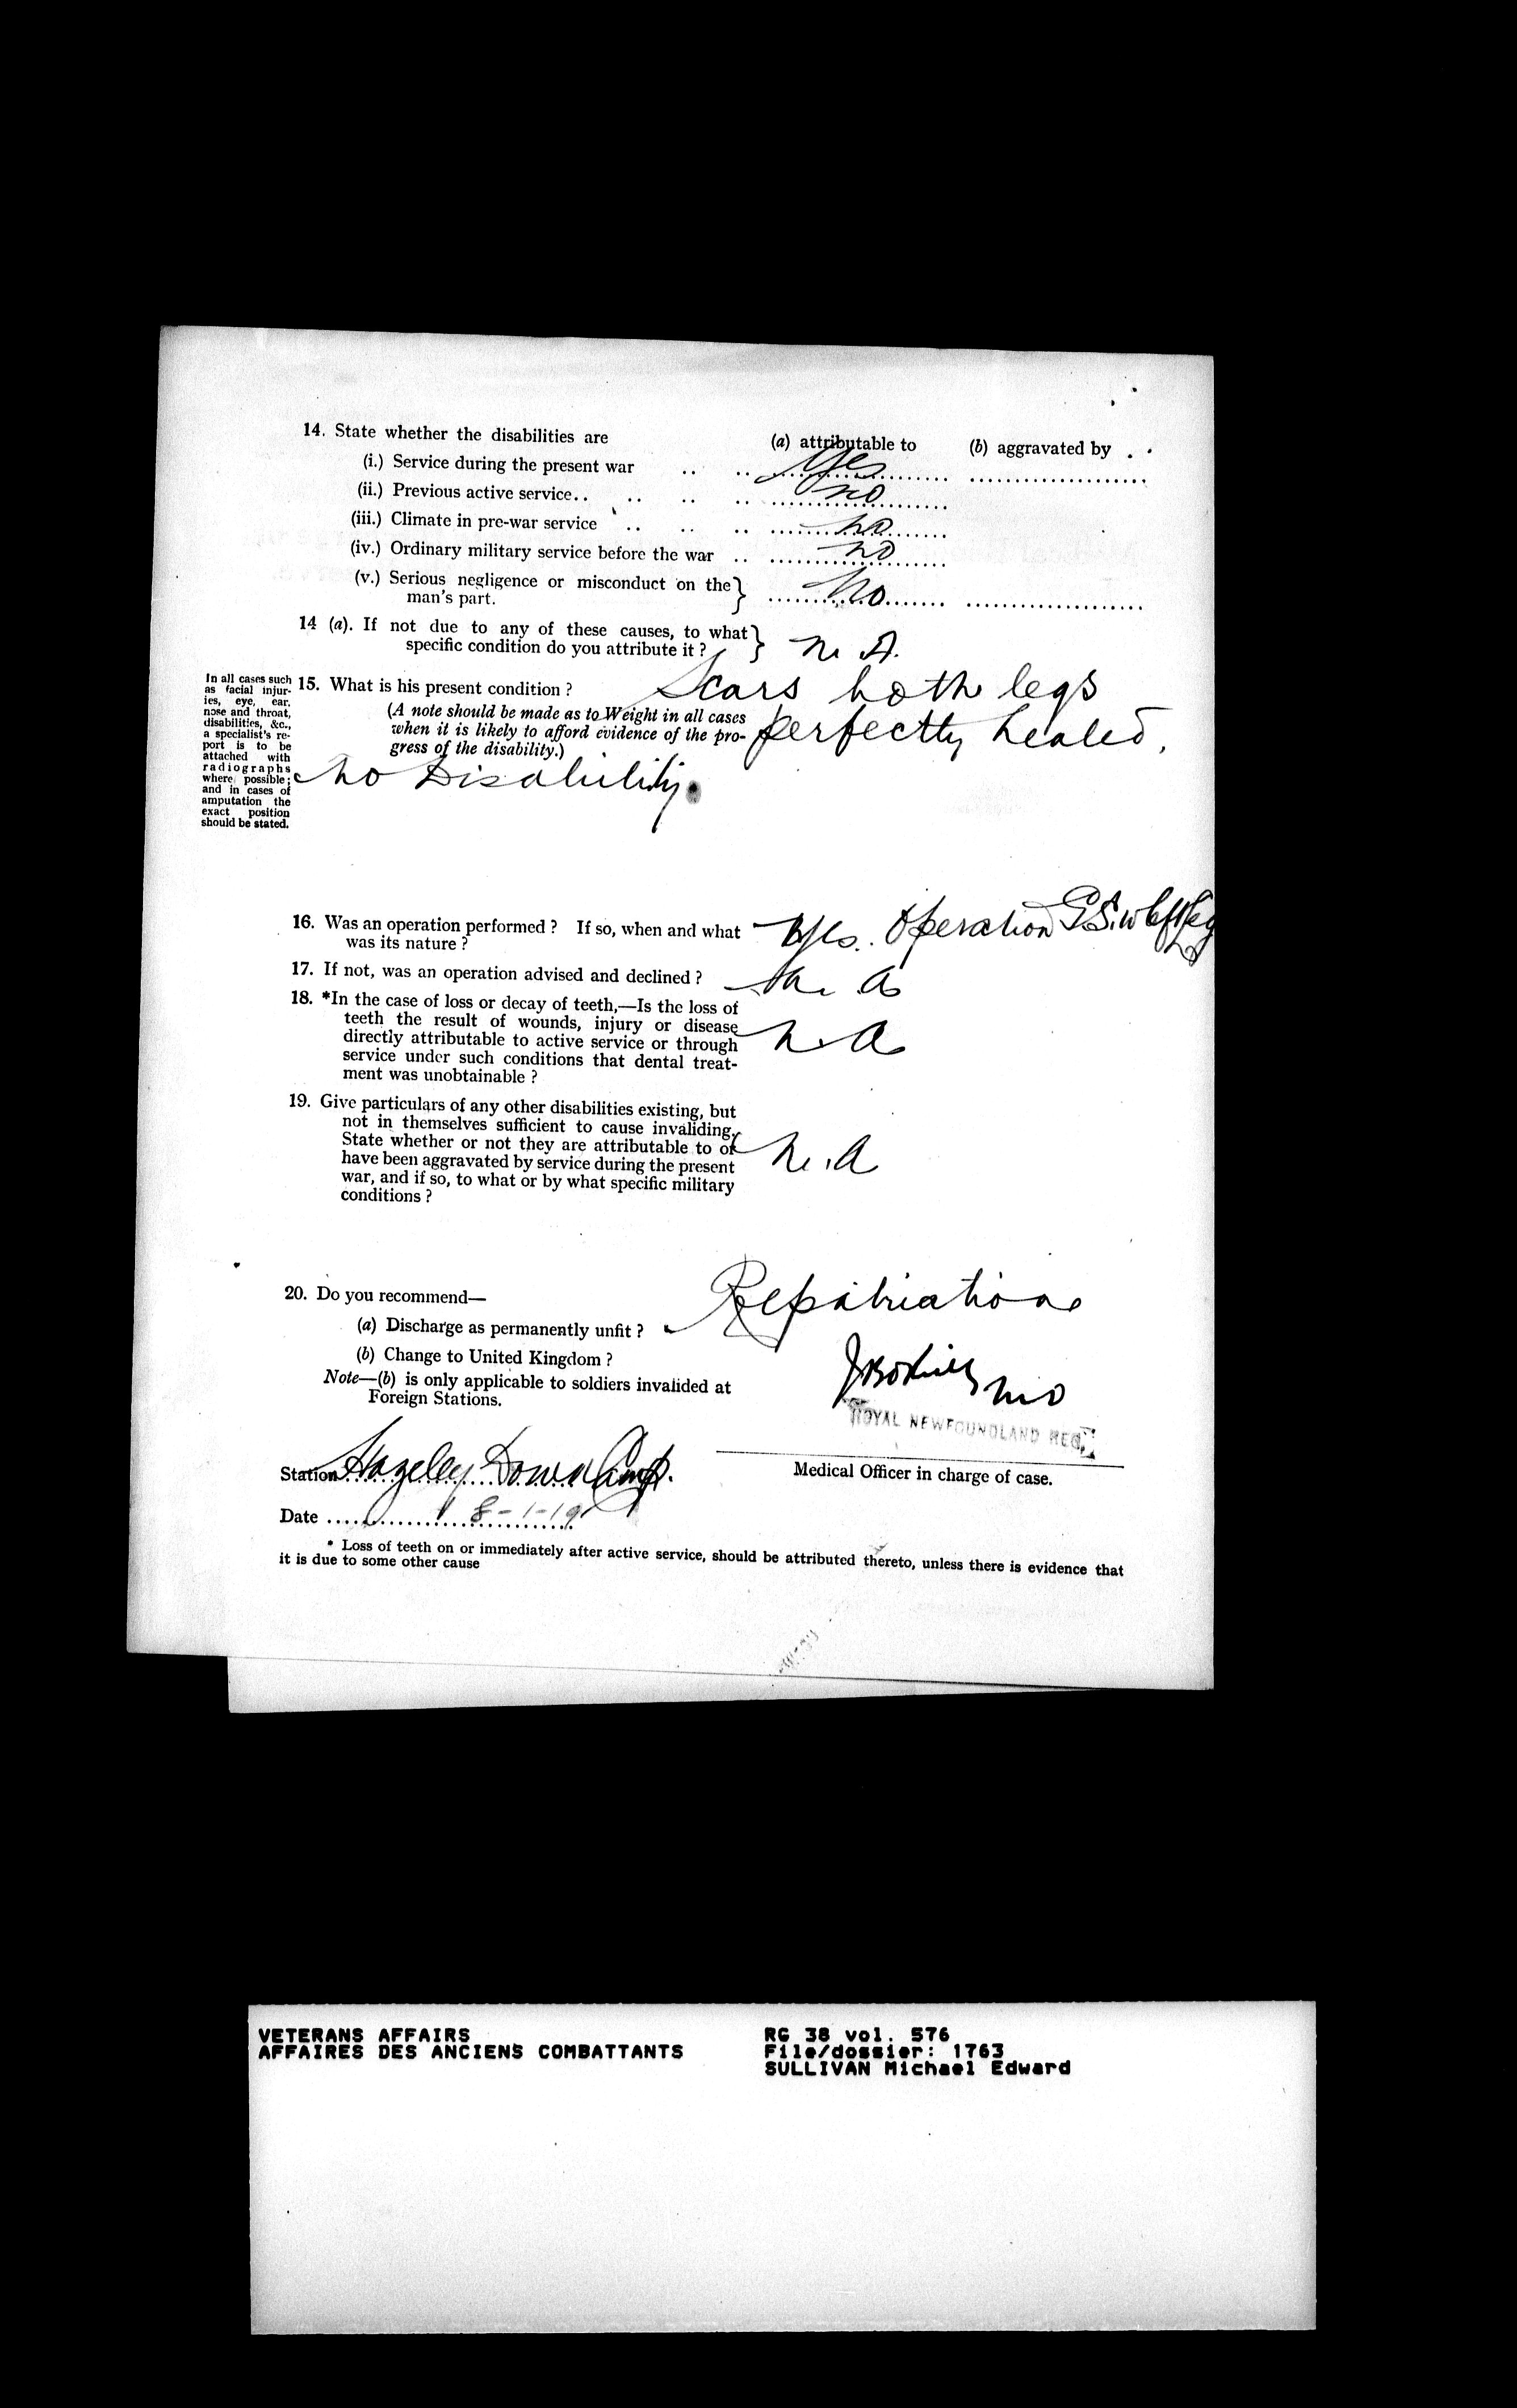 14. State whether the disabilities are (a) attributable to (b) aggravated by . .
(i.) Service during the present war .. .. Yes
(ii.) Previous active service.. .. .. .. no
(iii.) Climate in pre-war service .. .. .. no
(iv.) Ordinary military service before the war .. no
(v.) Serious negligence or misconduct on the man's part. } No
14 (a). If not due to any of these causes, to what } n. A.
specific condition do you attribute it ?
In all cases such
as facial injur-
ies, eye, ear,
nose and throat,
disabilities, &c.,
a specialist's re-
port is to be
attached with
radiographs
where possible;
and in cases of
amputation the
exact position
should be stated.
15. What is his present condition ? Scars both legs
(A note should be made as to Weight in all cases
when it is likely to afford evidence of the pro-
gress of the disability.)
perfectly healed,
no Disability.
16. Was an operation performed ? If so, when and what Yes. Operation G.S.W left leg
was its nature ?
17. If not, was an operation advised and declined ? n. a
18. *In the case of loss or decay of teeth,—Is the loss of
teeth the result of wounds, injury or disease
directly attributable to active service or through n. a
service under such conditions that dental treat-
ment was unobtainable ?
19. Give particulars of any other disabilities existing, but
not in themselves sufficient to cause invaliding.
State whether or not they are attributable to or
have been aggravated by service during the present n. a
war, and if so, to what or by what specific military
conditions ?
20. Do you recommend— Repatriation
(a) Discharge as permanently unfit ?
(b) Change to United Kingdom ?
Note—(b) is only applicable to soldiers invalided at
Foreign Stations.
ROYAL NEWFOUNDLAND REG.
Station Hazeley Down Camp.
Medical Officer in charge of case.
Date 8-1-19
* Loss of teeth on or immediately after active service, should be attributed thereto, unless there is evidence that
it is due to some other cause
VETERANS AFFAIRS
AFFAIRES DES ANCIENS COMBATTANTS
RG 38 vol. 576
File/dossier: 1763
SULLIVAN Michael Edward